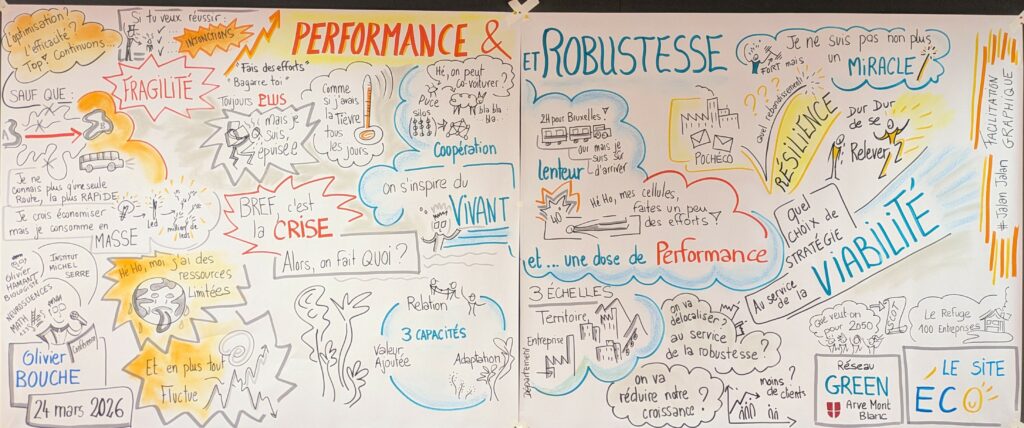 L'optimisation ?
l'efficacité ?
Top ! Continuons...
Si tu veux réussir :
INJONCTIONS
PERFORMANCE &
FRAGILITÉ
"Fais des efforts"
"Bagarre toi"
Toujours PLUS
mais je
suis
épuisée
Comme
si j'avais
la fièvre
tous
les jours
Hé, on peut
co-voiturer ?
Puce
silos
bla bla
bla
Coopération
SAUF QUE :
Je ne
connais plus qu'une seule
Route, la plus RAPIDE
Je crois économiser
mais je consomme en
MASSE
led
leds
BREF, c'est
la CRISE
Alors, on fait QUOI ?
on s'inspire du
VIVANT
Olivier
HAMANT
BIOLOGISTE
INSTITUT
MICHEL
SERRE
NEUROSCIENCES
MATH
Conférencier
Olivier
BOUCHE
24 mars 2026
Hé Ho, moi j'ai des
ressources
Limitées
Et, en plus tout
Fluctue
Relation
3 CAPACITÉS
Valeur
Ajoutée
Adaptation
ET ROBUSTESSE
2H pour Bruxelles
oui mais je
suis sûr
d'arriver
lenteur
Hé Ho, mes cellules,
faites un peu
des efforts
et... une dose de Performance
POCHÉCO
Quel rebondissement !
RÉSILIENCE
FORT mais
Je ne suis pas non plus
un MIRACLE
Dur Dur
de se
Relever
Quel
CHOIX de
STRATÉGIE
Au service
de la VIABILITÉ
3 ÉCHELLES
Territoire,
Entreprise
Département
on va
délocaliser ?
au service
de la robustesse ?
on va
réduire notre
croissance ?
moins
de clients
que veut on
pour 2050
Le Refuge
100 Entreprises
Réseau
GREEN
Arve Mont
Blanc
LE SITE
ÉCO
FACILITATION
GRAPHIQUE
#Jalan Jalan